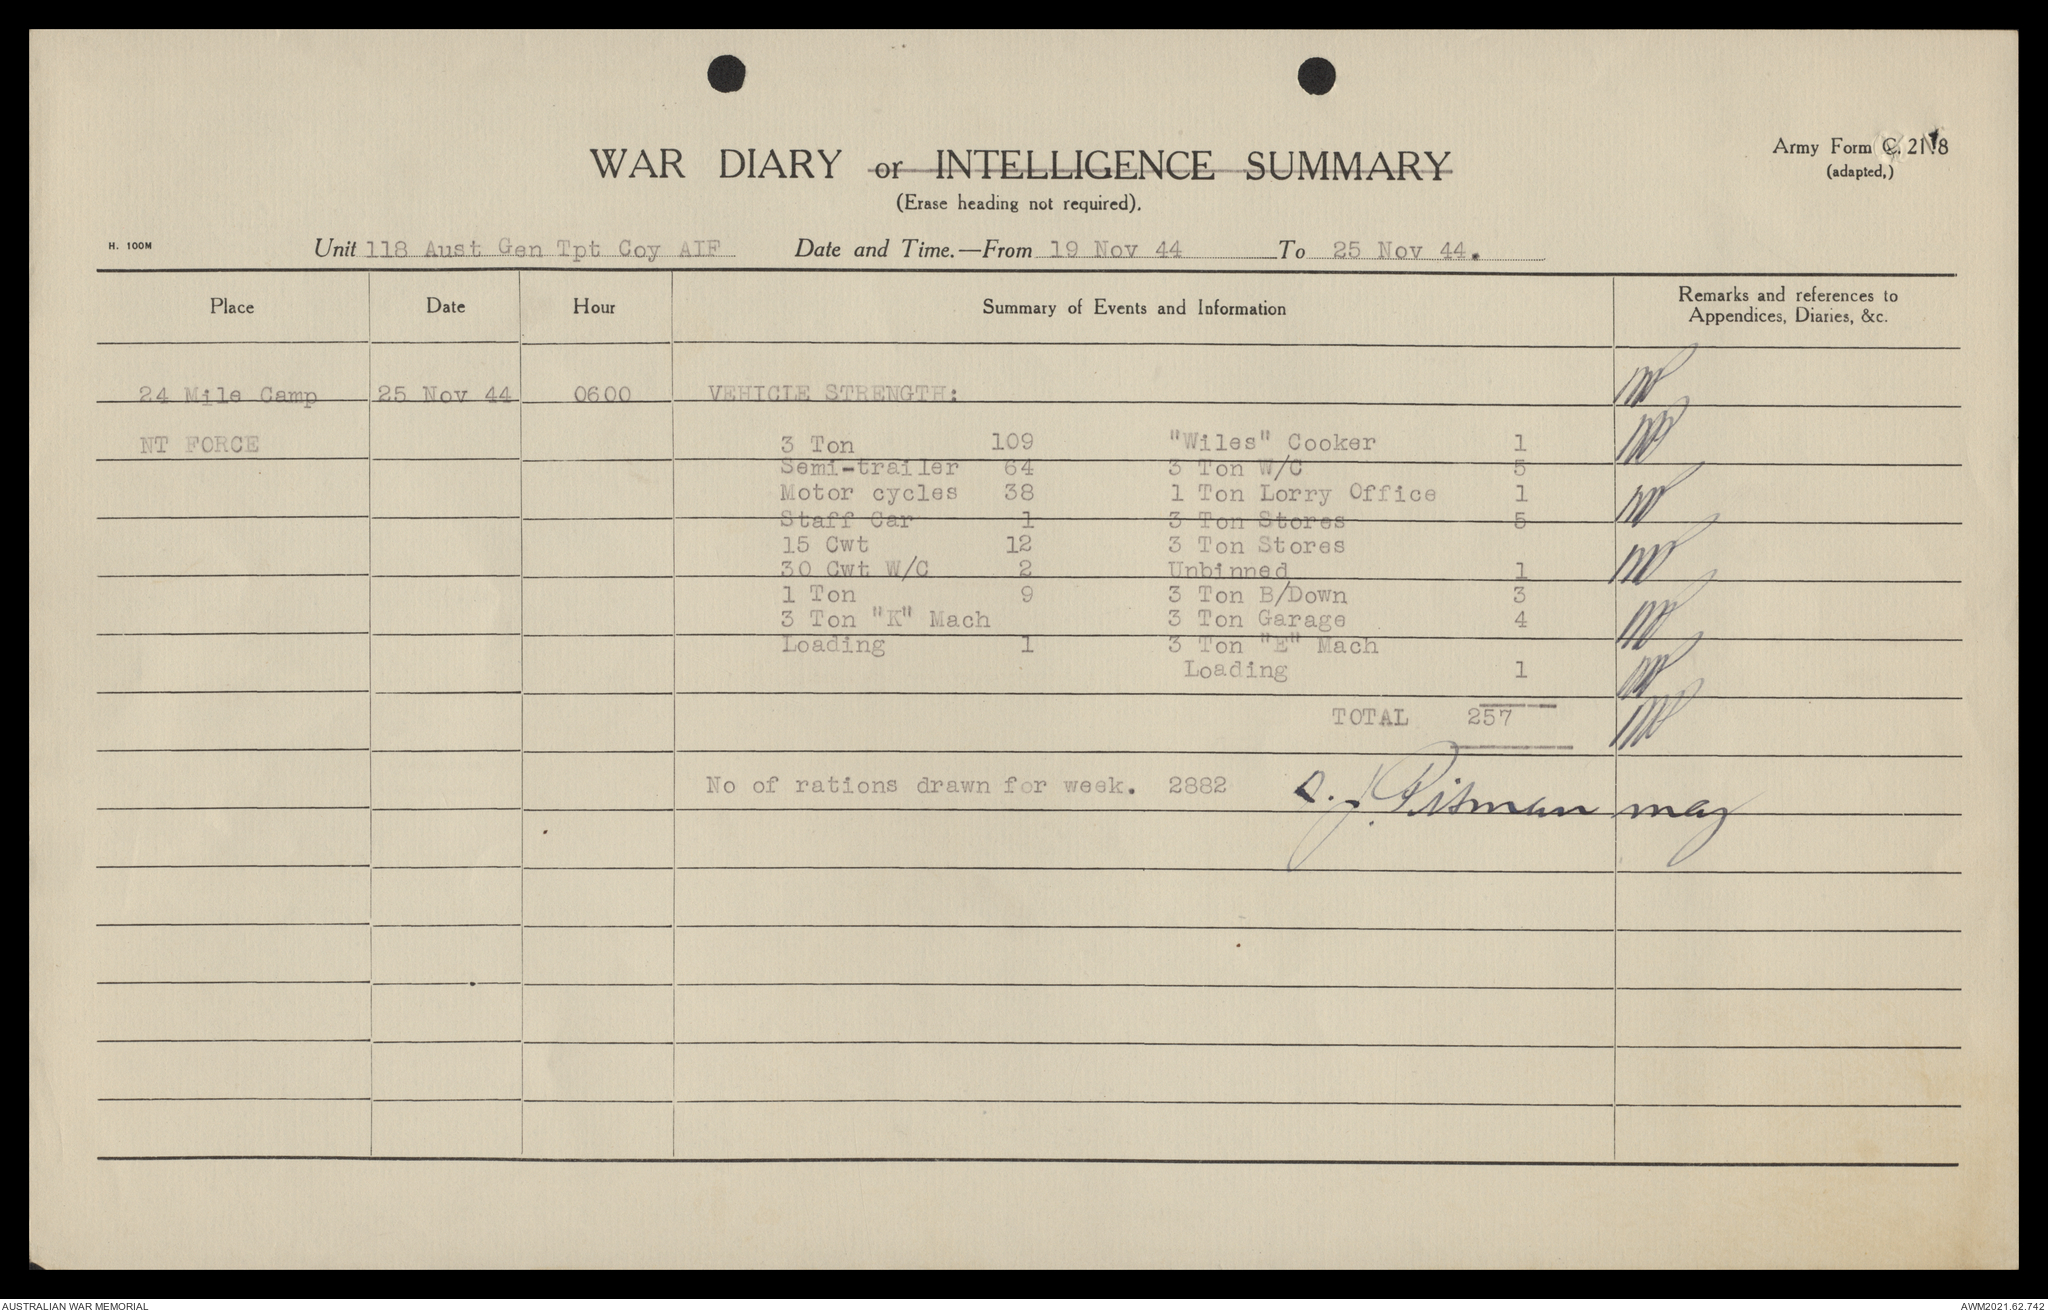 Army Form C. 2118
(adapted,)
WAR DIARY or INTELLIGENCE SUMMARY
(Erase heading not required).
H. 100M
Unit 118 Aust Gen Tpt Coy AIF Date and Time.—From 19 Nov 44 To 25 Nov 44.
Place Date Hour Summary of Events and Information Remarks and references to
Appendices, Diaries, &c.
24 Mile Camp 25 Nov 44 0600 VEHICLE STRENGTH:
NT FORCE 3 Ton 109 "Wiles" Cooker 1
Semi-trailer 64 3 Ton W/C 5
Motor cycles 38 1 Ton Lorry Office 1
Staff Car 1 3 Ton Stores 5
15 Cwt 12 3 Ton Stores
30 Cwt W/C 2 Unbinned 1
1 Ton 9 3 Ton B/Down 3
3 Ton "K" Mach 3 Ton Garage 4
Loading 1 3 Ton "E" Mach
Loading 1
TOTAL 257
No of rations drawn for week. 2882 Pitman Maj
AUSTRALIAN WAR MEMORIAL AWM2021.62.742